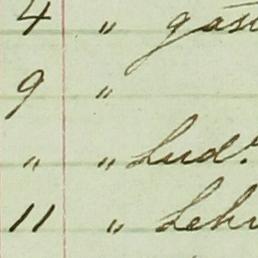 4 " gast
9 "
" " Lud.
11 " Leh